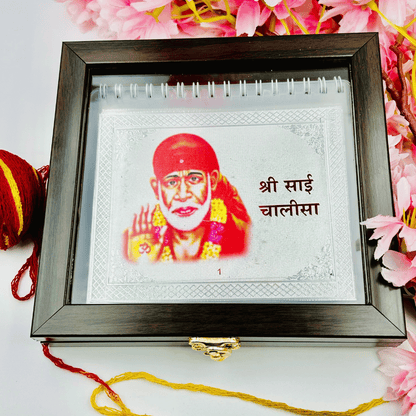 श्री साई
चालीसा
1